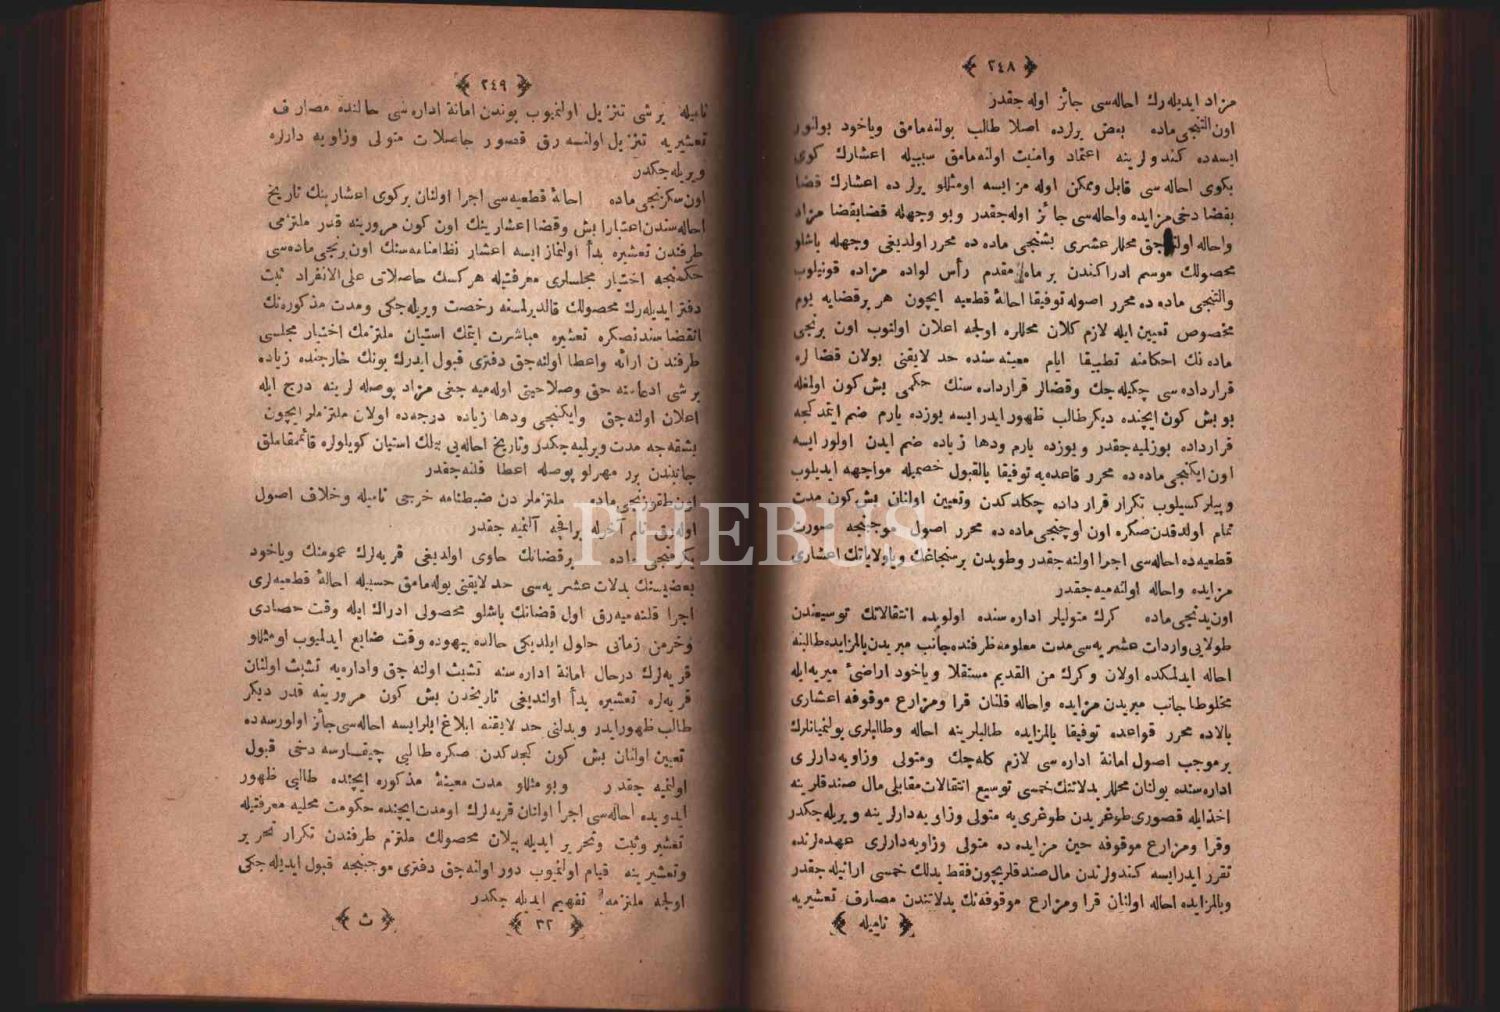 ﴿ ٢٤٨ ﴾
مزاد ايديله‌رك احاله‌سى جائز اوله‌جقدر
اون التنجى ماده بعض يرلرده اصلا طالب بولنه‌مامق وياخود بولنور
ايسه‌ده كندولرينه اعتماد وامنيت اولنه‌مامق سببيله اعشارك كوى
بكوى احاله‌سى قابل وممكن اوله‌مز ايسه اومثللو يرلرده اعشارك قضا
بقضا دخى مزايده واحاله‌سى جائز اوله‌جقدر وبو وجهله قضابقضا مزاد
واحاله اولنه‌جق محللر عشرى بشنجى ماده ده محرر اولديغى وجهله باشلو
محصولك موسم ادراكندن بر ماه مقدم رأس لواده مزاده قونيلوب
والتنجى ماده ده محرر اصوله توفيقا احالهٔ قطعيه ايچون هر برقضايه يوم
مخصوص تعيين ايله لازم كلان محللره اولجه اعلان اولنوب اون برنجى
ماده نك احكامنه تطبيقا ايام معينه سنده حد لايقنى بولان قضالره
قرارداده سى چكيله‌جك وقضالر قرارداده سنك حكمى بش كون اولمغله
بو بش كون ايچنده ديكر طالب ظهور ايدر ايسه يوزده يارم ضم ايتمدكجه
قرارداده بوزلميه‌جقدر ويوزده يارم ودها زياده ضم ايدن اولور ايسه
اون ايكنجى ماده ده محرر قاعده‌يه توفيقا بالقبول خصميله مواجهه ايديلوب
وپيلركسيلوب تكرار قرار داده چكلدكدن وتعيين اولنان بش كون مدت
تمام اولدقدن صكره اون اوچنجى ماده ده محرر اصول موجبنجه صورت
قطعيه‌ده احاله‌سى اجرا اولنه‌جقدر وطوبدن برسنجاغك وياولاياتك اعشارى
مزايده واحاله اولنه‌ميه‌جقدر
اون يدنجى ماده كرك متوليلر اداره سنده اولوبده انتقالاتك توسيعندن
طولايى واردات عشريه‌سى مدت معلومه ظرفنده جانب ميريدن بالمزايده طالبنه
احاله ايدلمكده اولان وكرك من القديم مستقلا وياخود اراضئ ميريه‌ايله
مخلوطا جانب ميريدن مزايده واحاله قلنان قرا ومزارع موقوفه اعشارى
بالاده محرر قواعده توفيقا بالمزايده طالبلرينه احاله وطالبلرى بولنميانلرك
برموجب اصول امانة اداره سى لازم كله‌جك ومتولى وزاويه‌دارلرى
اداره سنده بولنان محللر بدلاتنك خمسى توسيع انتقالات مقابلى مال صندقلرينه
اخذايله قصورى طوغريدن طوغرى‌يه متولى وزاويه‌دارلرينه ويريله‌جكدر
وقرا ومزارع موقوفه حين مزايده ده متولى وزاويه‌دارلرى عهده‌لرنده
تقرر ايدرايسه كندولرندن مال صندقلريچون فقط بدلك خمسى ارانيله‌جقدر
وبالمزايده احاله اولنان قرا ومزارع موقوفه‌نك بدلاتندن مصارف تعشيريه
﴿ ناميله ﴾
﴿ ٢٤٩ ﴾
ناميله برشى تنزيل اولنميوب بوندن امانة اداره سى حالنده مصارف
تعشيريه تنزيل اولنه‌رق قصور حاصلات متولى وزاويه دارلره
ويريله‌جكدر
اون سكزنجى ماده احالهٔ قطعيه‌سى اجرا اولنان بركوى اعشارينك تاريخ
احاله‌سندن اعتبارا بش وقضا اعشارينك اون كون مرورينه قدر ملتزمى
طرفندن تعشيره بدأ اولنماز ايسه اعشار نظامنامه‌سنك اون برنجى ماده‌سى
حكمنجه اختيار مجلسلرى معرفتيله هركسك حاصلاتى على‌الانفراد ثبت
دفتر ايديله‌رك محصولك قالديرلمسنه رخصت ويريله‌جكى ومدت مذكوره‌نك
انقضاسندنصكره تعشيره مباشرت ايتمك استيان ملتزمك اختيار مجلسى
طرفندن ارائه واعطا اولنه‌جق دفترى قبول ايدرك بونك خارجنده زياده
برشى ادعاسنه حق وصلاحيتى اوله‌ميه‌جغى مزاد پوصله‌لرينه درج ايله
اعلان اولنه‌جق وايكنجى ودها زياده درجه‌ده اولان ملتزملر ايچون
بشقه‌جه مدت ويرلميه‌جكدر وتاريخ احاله‌يى بيلك استيان كويلولره قائممقاملق
جانبندن برر مهرلو پوصله اعطا قلنه‌جقدر
اون طقوزنجى ماده ملتزملردن ضبطنامه خرجى ناميله وخلاف اصول
اوله‌رق نام آخرله براقچه آلنميه جقدر
يكرمنجى ماده برقضانك حاوى اولديغى قريه‌لرك عمومنك وياخود
بعضيسنك بدلات عشريه‌سى حد لايقنى بوله‌مامق حسبيله احالهٔ قطعيه‌لرى
اجرا قلنه‌ميه‌رق اول قضانك باشلو محصولى ادراك ايله وقت حصادى
وخرمن زمانى حلول ايلديكى حالده بيهوده وقت ضايع ايدلميوب اومثللو
قريه‌لرك درحال امانة اداره سنه تشبث اولنه‌جق واداره‌يه تشبث اولنان
قريه‌لره تعشيره بدأ اولنديغى تاريخدن بش كون مرورينه قدر ديكر
طالب ظهور ايدر وبدلنى حد لايقنه ابلاغ ايلرايسه احاله‌سى جائز اولورسه‌ده
تعيين اولنان بش كون كچدكدن صكره طالبى چيقارسه دخى قبول
اولنميه جقدر وبو مثللو مدت معينهٔ مذكوره ايچنده طالبى ظهور
ايدوبده احاله‌سى اجرا اولنان قريه‌لرك اومدت ايچنده حكومت محليه معرفتيله
تعشير وثبت وتحرير ايديله بيلان محصولك ملتزم طرفندن تكرار تحرير
وتعشيرينه قيام اولنميوب دور اولنه‌جق دفترى موجبنجه قبول ايديله‌جكى
اولجه ملتزمه تفهيم ايديله جكدر
﴿ ٣٢ ﴾ ﴿ ث ﴾
PHEBUS